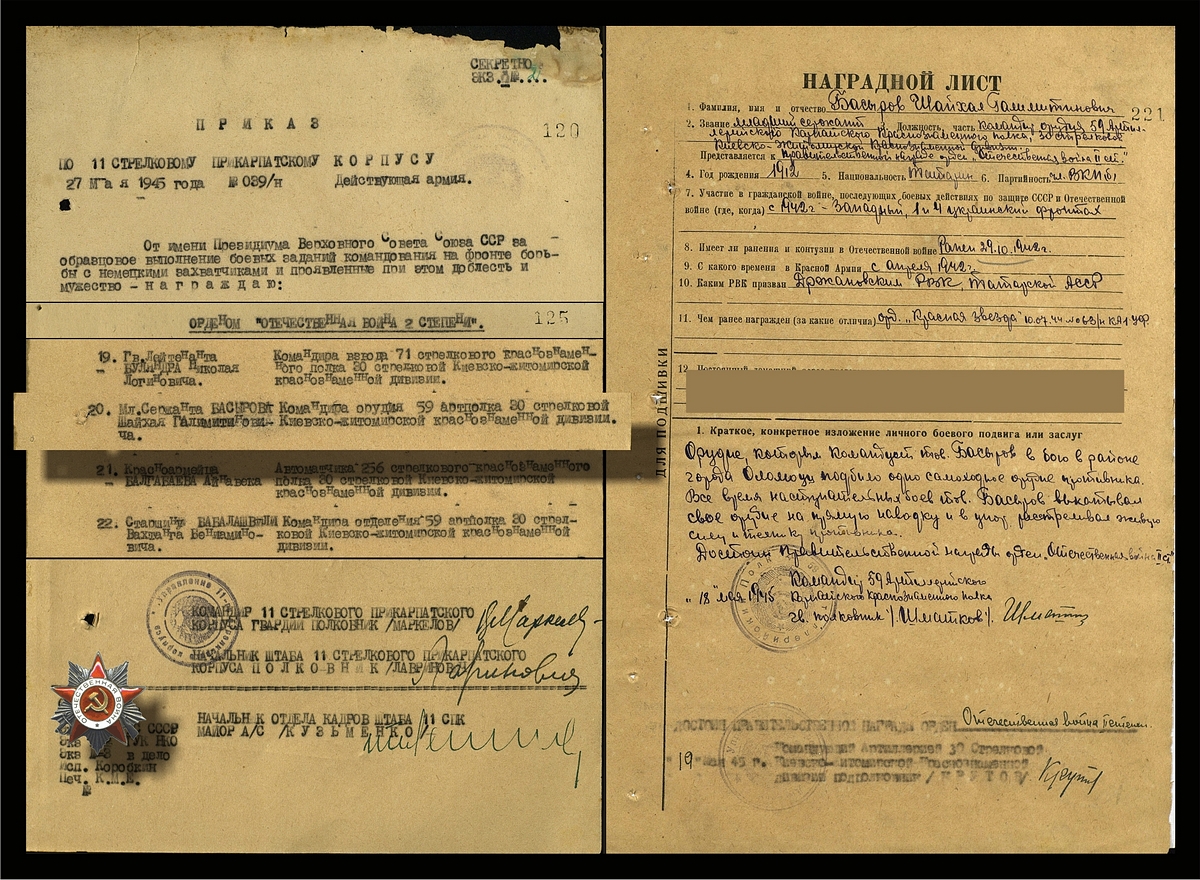 СЕКРЕТНО
ЭКЗ.
П Р И К А З
120
ПО 11 СТРЕЛКОВОМУ ПРИКАРПАТСКОМУ КОРПУСУ
27 мая 1945 года №039/н Действующая армия.
От имени Президиума Верховного Совета Союза ССР за
образцовое выполнение боевых заданий командования на фронте борь-
бы с немецкими захватчиками и проявленные при этом доблесть и
мужество - н а г р а ж д а ю:
ОРДЕНОМ "ОТЕЧЕСТВЕННАЯ ВОЙНА 2 СТЕПЕНИ".
125
19. Гв.Лейтенанта Командира взвода 71 стрелкового краснознамен-
БУЛИНДРА Николая ного полка 30 стрелковой Киевско-житомирской
Логиновича. краснознаменной дивизии.
20. Мл.Сержанта БАСЫРОВА Командира орудия 59 артполка 30 стрелковой
Шайхая Галимитинови- Киевско-житомирской краснознаменной дивизии.
ча.
21. Красноармейца Автоматчика 256 стрелкового краснознаменного
БАЛГАБАЕВА Айнавека полка 30 стрелковой Киевско-житомирской
краснознаменной дивизии.
22. Старшину БАБАЛАШВИЛИ Командира отделения 59 артполка 30 стрел-
Вахтанга Бениамино- ковой Киевско-житомирской краснознаменной
вича. дивизии.
КОМАНДИР 11 СТРЕЛКОВОГО ПРИКАРПАТСКОГО
КОРПУСА ГВАРДИИ ПОЛКОВНИК /МАРКЕЛОВ/
НАЧАЛЬНИК ШТАБА 11 СТРЕЛКОВОГО ПРИКАРПАТСКОГО
КОРПУСА П О Л К О В Н И К /ЛАВРИНОВИЧ/
НАЧАЛЬНИК ОТДЕЛА КАДРОВ ШТАБА 11 СПК
МАЙОР А/С /КУЗЬМЕНКО/
ОТЕЧЕСТВЕННАЯ ВОЙНА
СССР
НКО
в дело
Исп. Коробкин
Печ. К.П.Е.
НАГРАДНОЙ ЛИСТ
221
1. Фамилия, имя и отчество Басыров Шайхая Галимитинович
2. Звание младший сержант Должность, часть командир орудия 59 Артил-
лерийского Краснознаменного полка, 30 стрелковой
Киевско-Житомирской Краснознаменной дивизии.
Представляется к правительственной награде орден "Отечественная война II ст."
4. Год рождения 1912 5. Национальность Татарин 6. Партийность чл. ВКП(б)
7. Участие в гражданской войне, последующих боевых действиях по защите СССР и Отечественной
войне (где, когда) с 1942г - Западный, 1 и 4 украинский фронтах
8. Имеет ли ранения и контузии в Отечественной войне Ранен 29.10.1942г.
9. С какого времени в Красной Армии с апреля 1942г.
10. Каким РВК призван Дрожановским РВК, Татарской АССР
11. Чем ранее награжден (за какие отличия) орд. "Красная звезда" 10.07.44
12
ДЛЯ ПОДШИВКИ
I. Краткое, конкретное изложение личного боевого подвига или заслуг
Орудие, которым командует тов. Басыров в бою в районе
города Оломоуц подбило одно самоходное орудие противника.
Все время наступательных боев тов. Басыров выкатывал
свое орудие на прямую наводку и в упор расстреливал живую
силу и технику противника.
Достоин Правительственной награды орден "Отечественная война II ст"
Командир 59 Артиллерийского
"18" мая 1945 Краснознаменного полка
гв. полковник /Шматков/
ДОСТОИН ПРАВИТЕЛЬСТВЕННОЙ НАГРАДЫ ОРДЕН Отечественная война II степени.
Командующий Артиллерией 30 Стрелковой
19 мая 45 г. Киевско-Житомирской Краснознаменной
дивизии подполковник /КРЕТОВ/